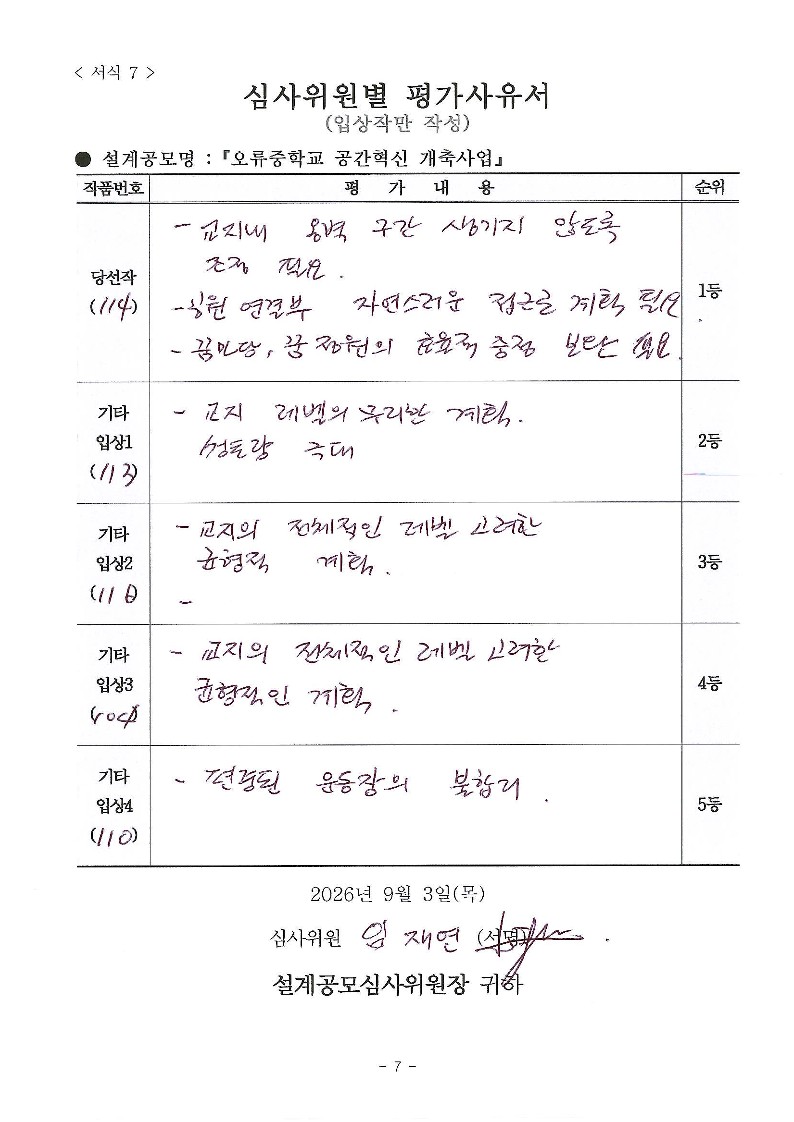 < 서식 7 >
심사위원별 평가사유서
(입상작만 작성)
● 설계공모명 : 『오류중학교 공간혁신 개축사업』
작품번호 평 가 내 용 순위
당선작 (114) 1등
- 교지내 옹벽 구간 생기지 않도록
조정 필요.
- 연결부 자연스러운 접근로 계획 필요
- 꿈마당, 꿈정원의 효율적 보완 필요.
기타 입상1 (113) 2등
- 교지 레벨의 무리한 계획.
성토량 극대
기타 입상2 3등
- 교지의 전체적인 레벨 고려한
균형적 계획.
-
기타 입상3 4등
- 교지의 전체적인 레벨 고려한
균형적인 계획.
기타 입상4 (110) 5등
- 편중된 운동장의 불합리.
2026년 9월 3일(목)
심사위원 임재연 (서명)
설계공모심사위원장 귀하
- 7 -